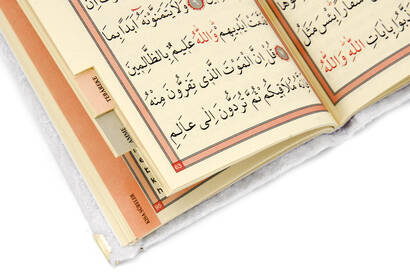 اَسْفَارًا بِئْسَ مَثَلُ
بِاٰيَاتِ اللّٰهِ وَاللّٰهُ
وَلَا يَتَمَنَّوْنَهُٓ اَبَدًا بِمَا
اَيْدِيهِمْ وَاللّٰهُ عَلِيمٌ بِالظَّالِمِينَ
قُلْ اِنَّ الْمَوْتَ الَّذِى تَفِرُّونَ مِنْهُ
مُلَاقِيكُمْ ثُمَّ تُرَدُّونَ اِلٰى عَالِمِ
63
TEBAREKE
AMME
KISA SURELER